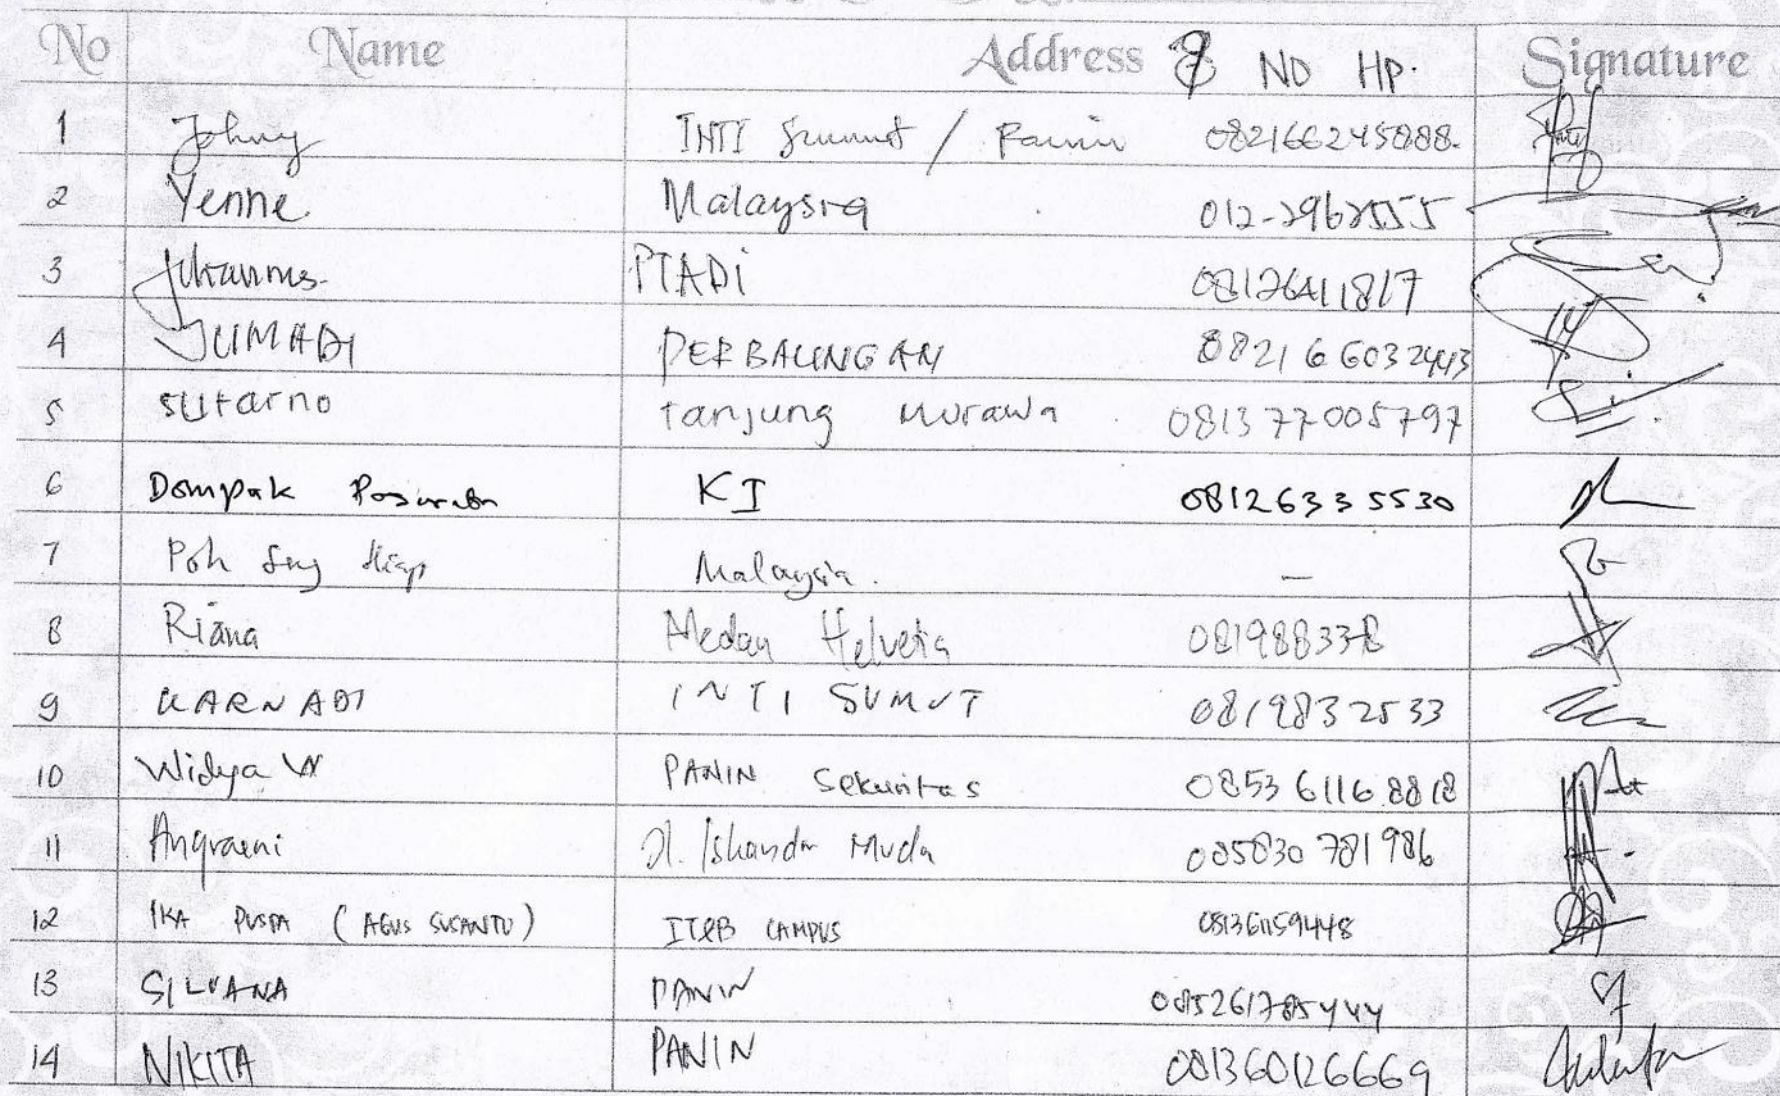 No Name Address & NO HP. Signature
1 Johny INTI Sumut / Panin 082166245888.
2 Yenne. Malaysia 012-2962555
3 Johannes. PTADi 08126411817
4 JUMADI PERBAUNGAN 0821 6 6032443
5 sutarno tanjung Morawa 0813 77005797
6 Dompak KI 081263355530
7 Poh Malaysia. -
8 Riana Medan Helvetia 0819883378
9 KARNADI INTI SUMUT 0819832533
10 Widya W PANIN Sekuritas 0853 6116 8818
11 Angraeni Jl. Iskandar Muda 085830 781986
12 IKA PUSPA (AGUS SUSANTO) IT&B CAMPUS 081361159448
13 SILVANA PANIN 085261785444
14 NIKITA PANIN 081360126669